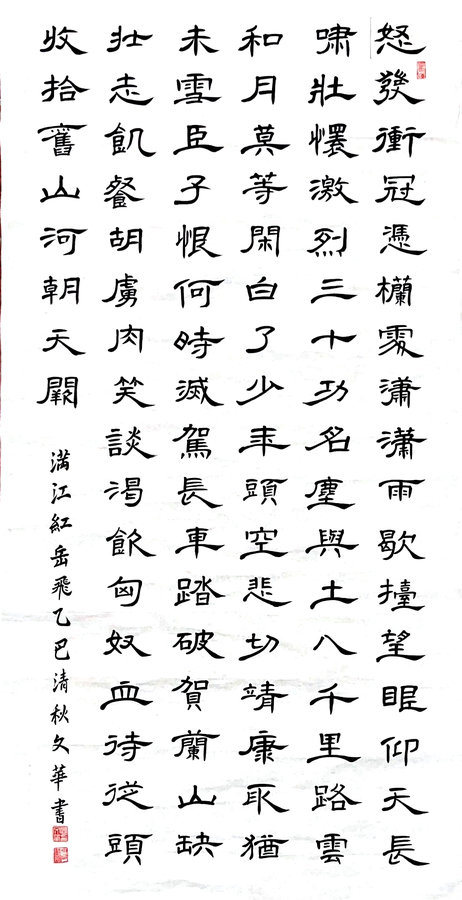 怒發衝冠憑欄處瀟瀟雨歇擡望眼仰天長
嘯壯懷激烈三十功名塵與土八千里路雲
和月莫等閑白了少年頭空悲切靖康恥猶
未雪臣子恨何時滅駕長車踏破賀蘭山缺
壯志飢餐胡虜肉笑談渴飲匈奴血待從頭
收拾舊山河朝天闕
滿江紅岳飛乙巳清秋文華書